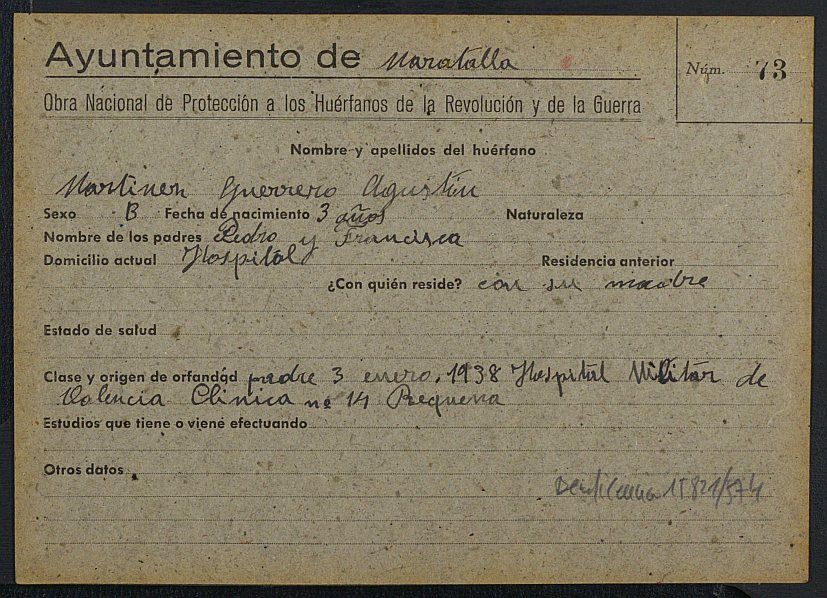 Ayuntamiento de Maratalla
Núm. 73
Obra Nacional de Protección a los Huérfanos de la Revolución y de la Guerra
Nombre y apellidos del huérfano
Martinez Guerrero Agustín
Sexo B Fecha de nacimiento 3 años Naturaleza
Nombre de los padres Pedro y Francisca
Domicilio actual Hospital Residencia anterior
¿Con quién reside? con su madre
Estado de salud
Clase y origen de orfandad padre 3 enero, 1938 Hospital Militar de
Valencia Clinica nº 14 Requena
Estudios que tiene o viene efectuando
Otros datos